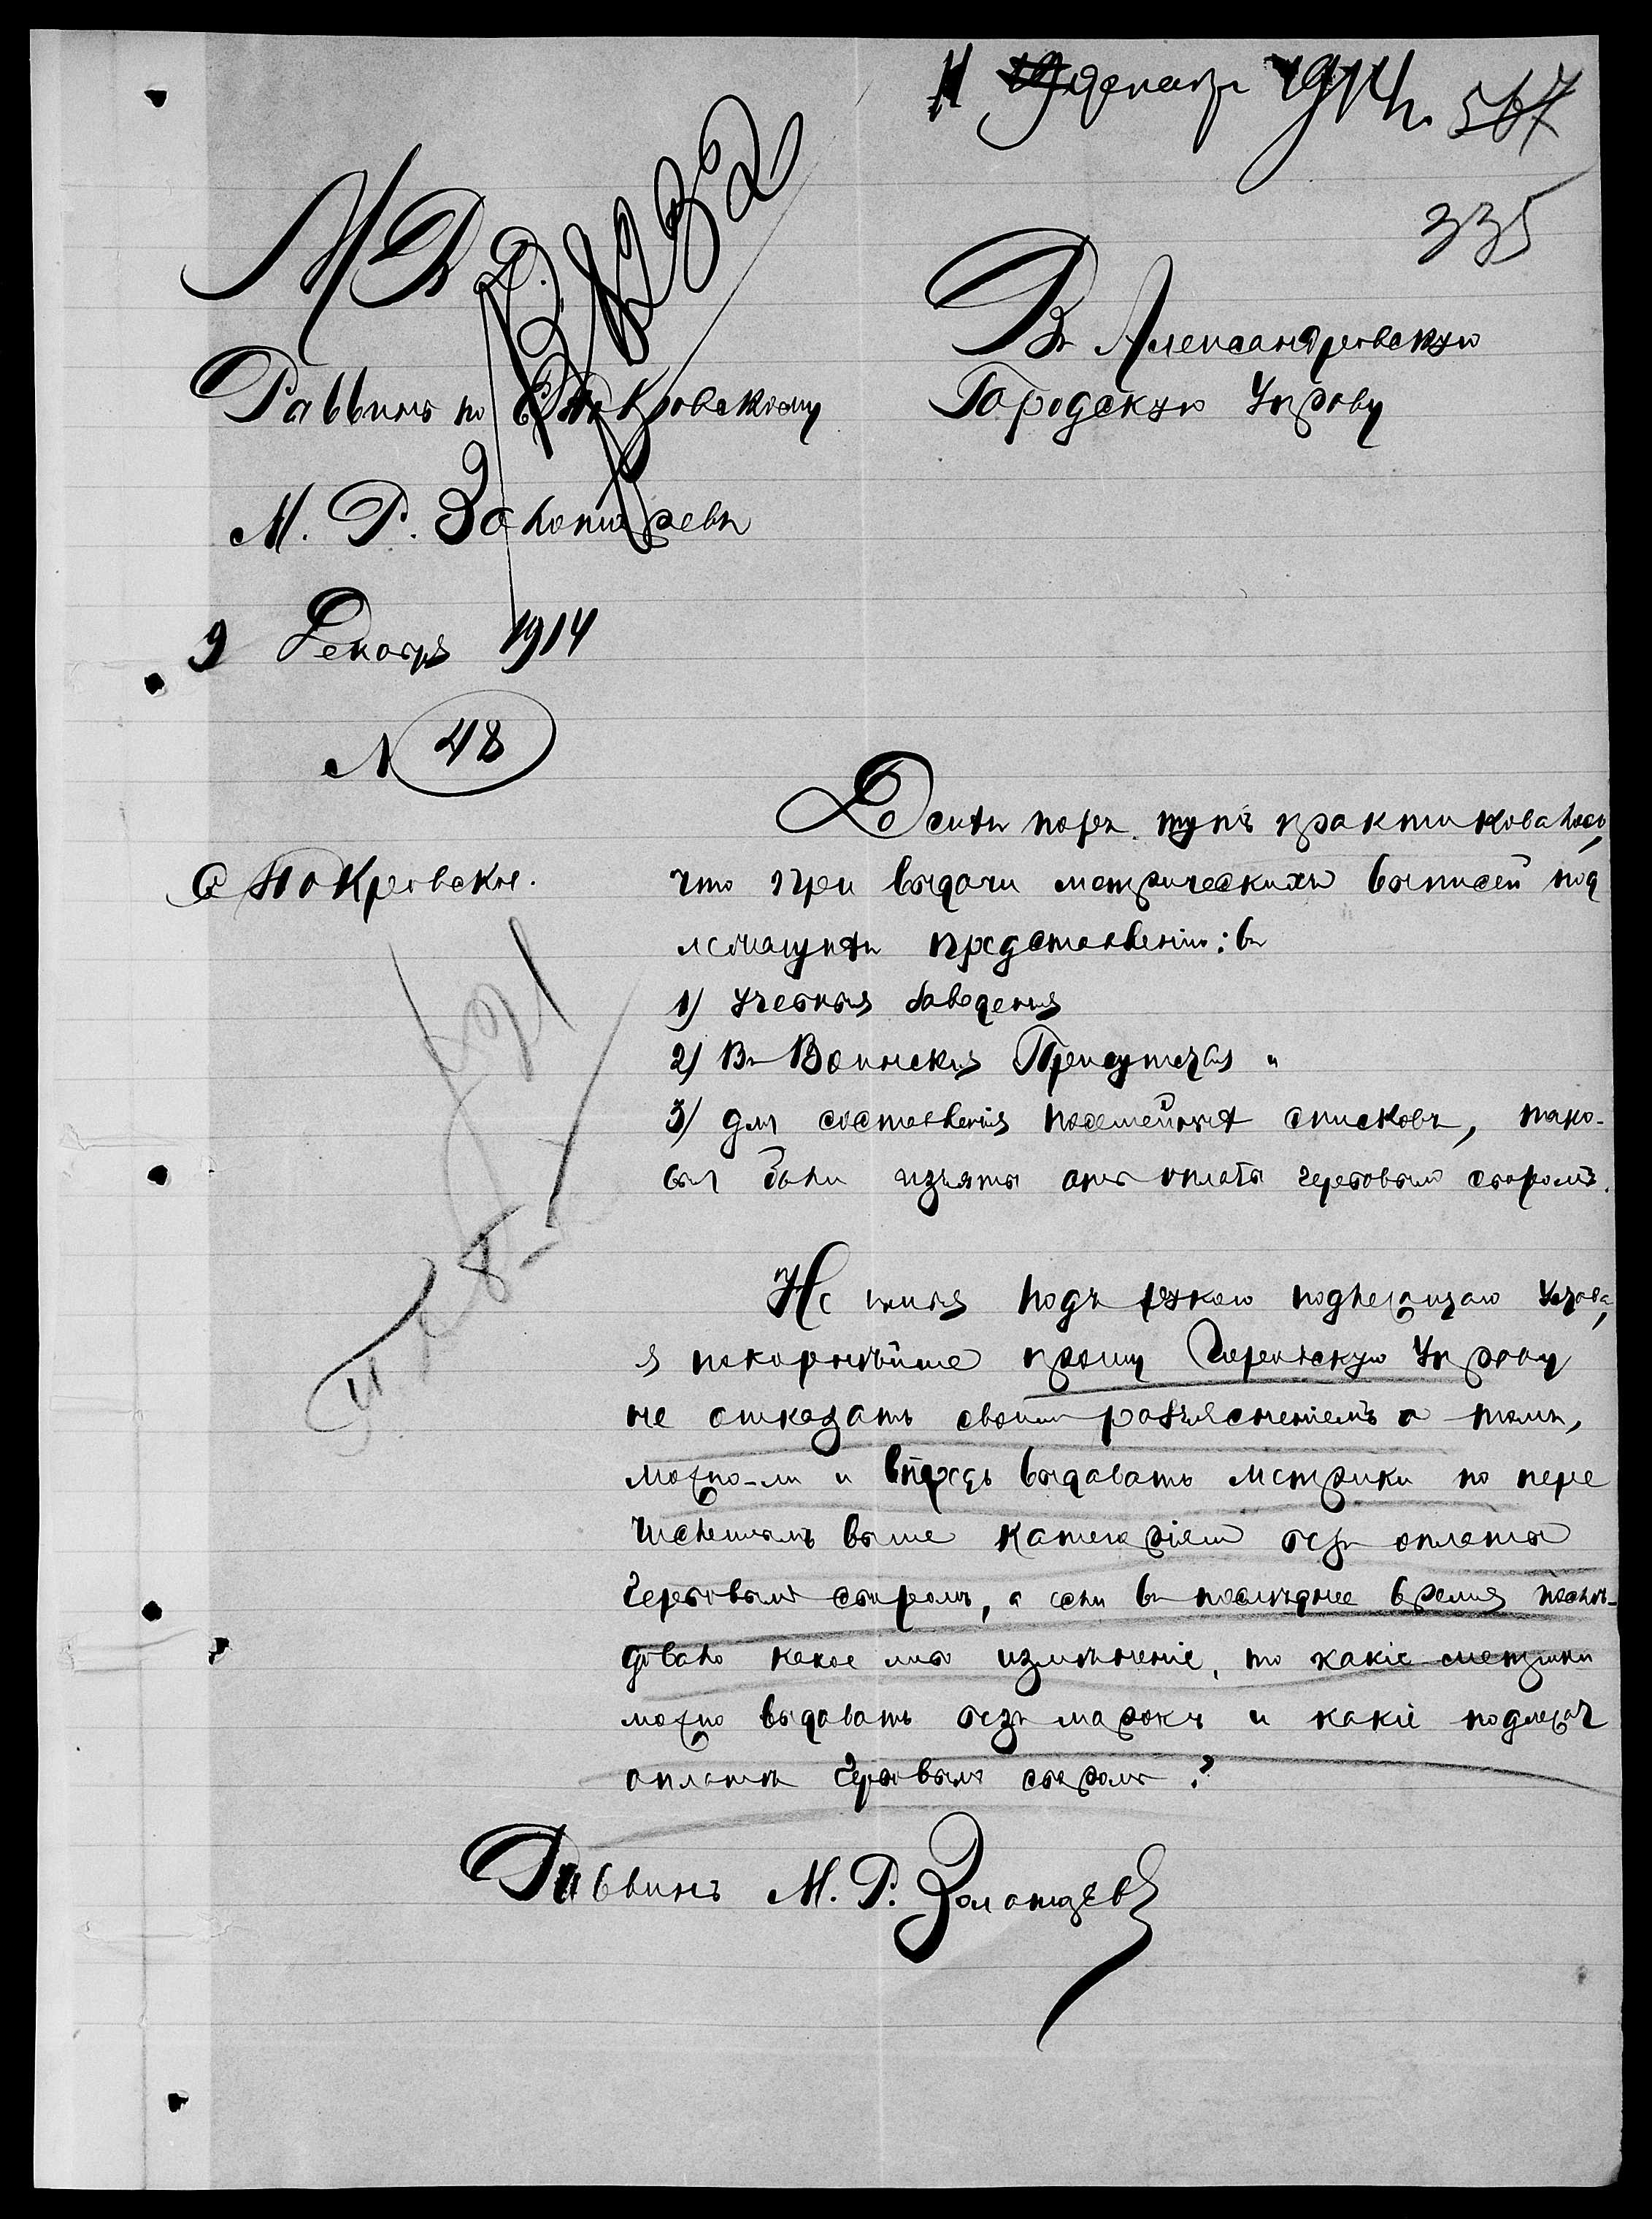 11 декабр 1914 г.
567
335
М В Д
Раввинъ по с. Покровскому
М. Р. Золотаревъ
9 Декабря 1914
N 48
с Покровское.
Въ Александровскую
Городскую Управу
До сихъ поръ тутъ практиковалось,
что при выдачи метрическихъ выписей под
лежащихъ представленію: въ
1) Учебныя Заведенія
2) Въ Воинскія Присутствія и
3) для составленія посемейныхъ списковъ, тако-
выя были изъяты отъ оплаты гербовымъ сборомъ.
Не имѣя подъ рукою подлежащаго Устава,
я покорнѣйше прошу Городскую Управу
не отказать своимъ разъясненіемъ о томъ,
можно-ли и впредь выдавать метрики по пере
численнымъ выше категоріямъ безъ оплаты
Гербовымъ сборомъ, а если въ последнее время послѣ-
довало какое либо измѣненіе, то какіе метрики
можно выдавать безъ марокъ и какіе подлежат
оплатѣ Гербовымъ сборомъ?
Раввинъ М. Р. Золотаревъ